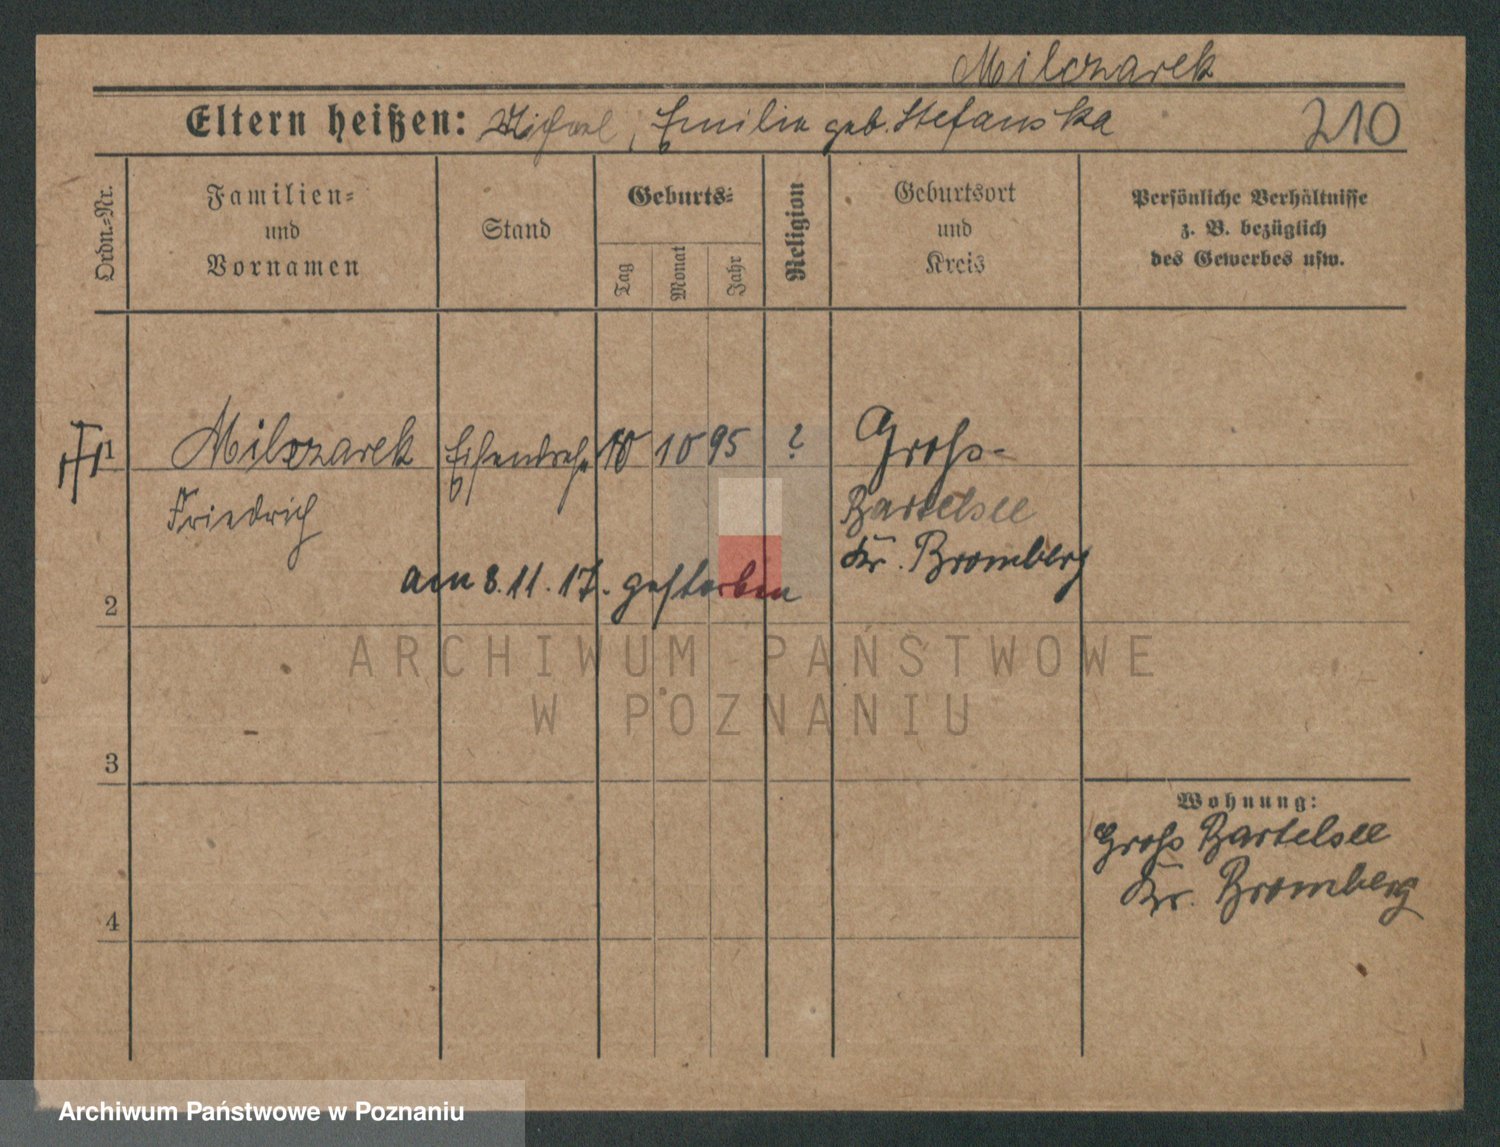 Milczarek
Eltern heißen: Michael, Emilia geb. Stefanska 210
Ordn.-Nr.
Familien-
und
Vornamen
Stand
Geburts-
Tag
Monat
Jahr
Religion
Geburtsort
und
Kreis
Persönliche Verhältnisse
z. B. bezüglich
des Gewerbes usw.
1 Milczarek Eisendreher 10 10 95 ? Groß-
Friedrich Bartelsee
Kr. Bromberg
am 8.11.17. gestorben
2
ARCHIWUM PAŃSTWOWE
W POZNANIU
3
Wohnung:
Groß Bartelsee
Kr. Bromberg
4
Archiwum Państwowe w Poznaniu